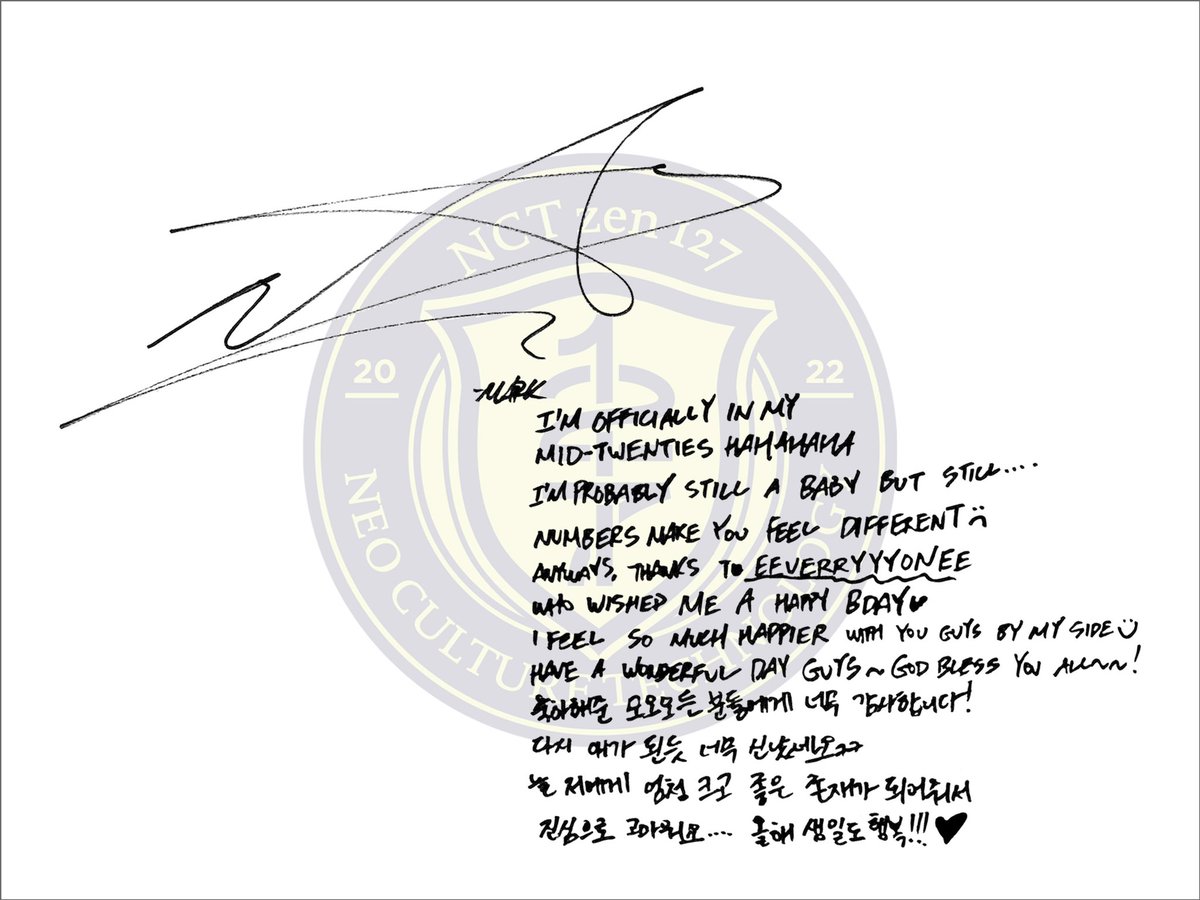 NCT zen 127
20 22
NEO CULTURE TECHNOLOGY
-MARK
I'M OFFICIALLY IN MY
MID-TWENTIES HAHAHAHA
I'M PROBABLY STILL A BABY BUT STILL....
NUMBERS MAKE YOU FEEL DIFFERENT :(
ANYWAYS, THANKS TO EEVERRYYYONEE
WHO WISHED ME A HAPPY BDAY♥
I FEEL SO MUCH HAPPIER WITH YOU GUYS BY MY SIDE :)
HAVE A WONDERFUL DAY GUYS~ GOD BLESS YOU ALL~~!
축하해준 모오모든 분들에게 너무 감사합니다!
다시 애가 된듯 너무 신났네요ㅋㅋ
늘 저에게 엄청 크고 좋은 존재가 되어줘서
진심으로 고마워요.... 올해 생일도 행복!!! ♥